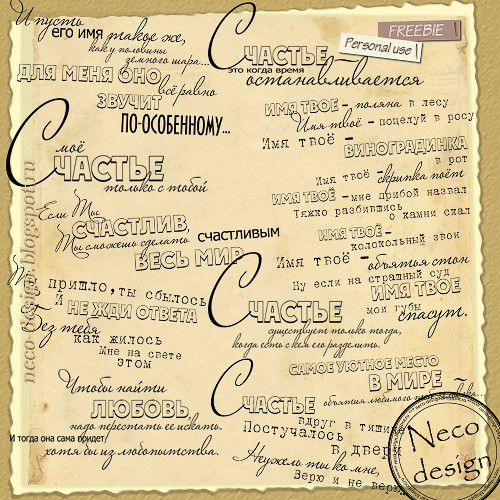 И пусть
его имя такое же,
как у половины
земного шара...
ДЛЯ МЕНЯ ОНО
всё равно
ЗВУЧИТ
ПО-ОСОБЕННОМУ...
моё
СЧАСТЬЕ
только с тобой
Если Ты
СЧАСТЛИВ,
Ты сможешь сделать
счастливым
ВЕСЬ МИР
пришло, ты сбылось
И НЕ ЖДИ ОТВЕТА
Без тебя
как жилось
Мне на свете
этом
Чтобы найти
ЛЮБОВЬ,
надо перестать ее искать.
И тогда она сама придет
хотя бы из любопытства.
FREEBIE
Personal use
СЧАСТЬЕ
это когда время
останавливается
ИМЯ ТВОЕ - поляна в лесу
Имя твоё - поцелуй в росу
Имя твоё -
ВИНОГРАДИНКА
в рот
Имя твоё -
скрипка поёт
ИМЯ ТВОЁ - мне прибой назвал
Тяжко разбившись
о камни скал
ИМЯ ТВОЁ -
колокольный звон
Имя твоё - объятья стон
Ну если на страшный суд
ИМЯ ТВОЕ
мои губы
спасут.
СЧАСТЬЕ
существует только тогда,
когда есть с кем его разделить.
САМОЕ УЮТНОЕ МЕСТО
В МИРЕ
объятия любимого
СЧАСТЬЕ
вдруг в тишине
Постучалось
в двери
Неужель ты ко мне,
Верю и не верю
Neco
design
neco-design.blogspot.ru